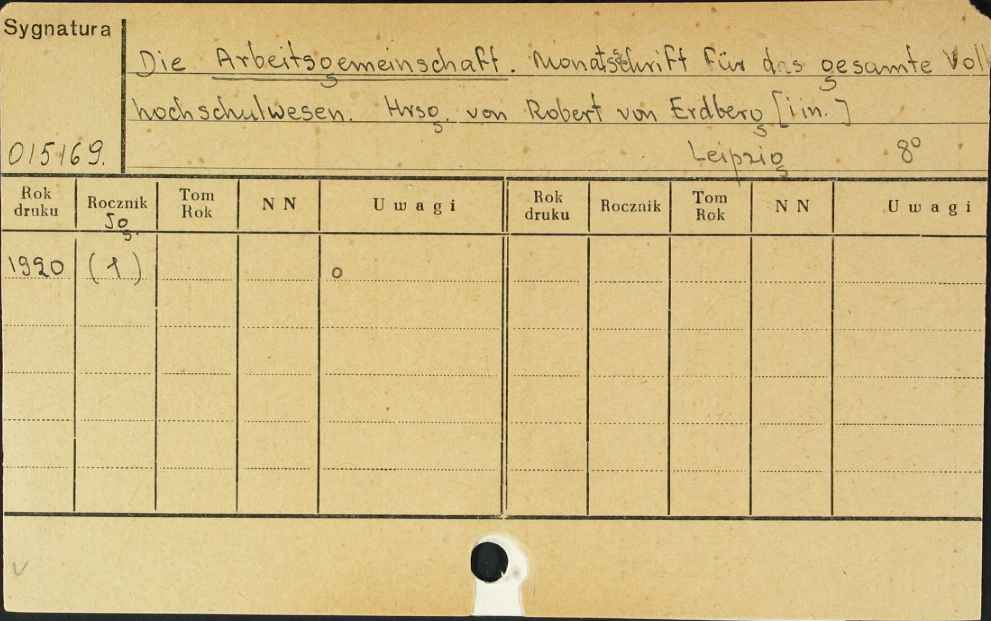 Sygnatura
Die Arbeitsgemeinschaft. Monatschrift für das gesamte Vol
hochschulwesen. Hrsg. von Robert von Erdberg [i in.]
015169. Leipzig 8°
Rok druku Rocznik Tom Rok NN Uwagi Rok druku Rocznik Tom Rok NN Uwagi
Jg.
1920 (1) o
v